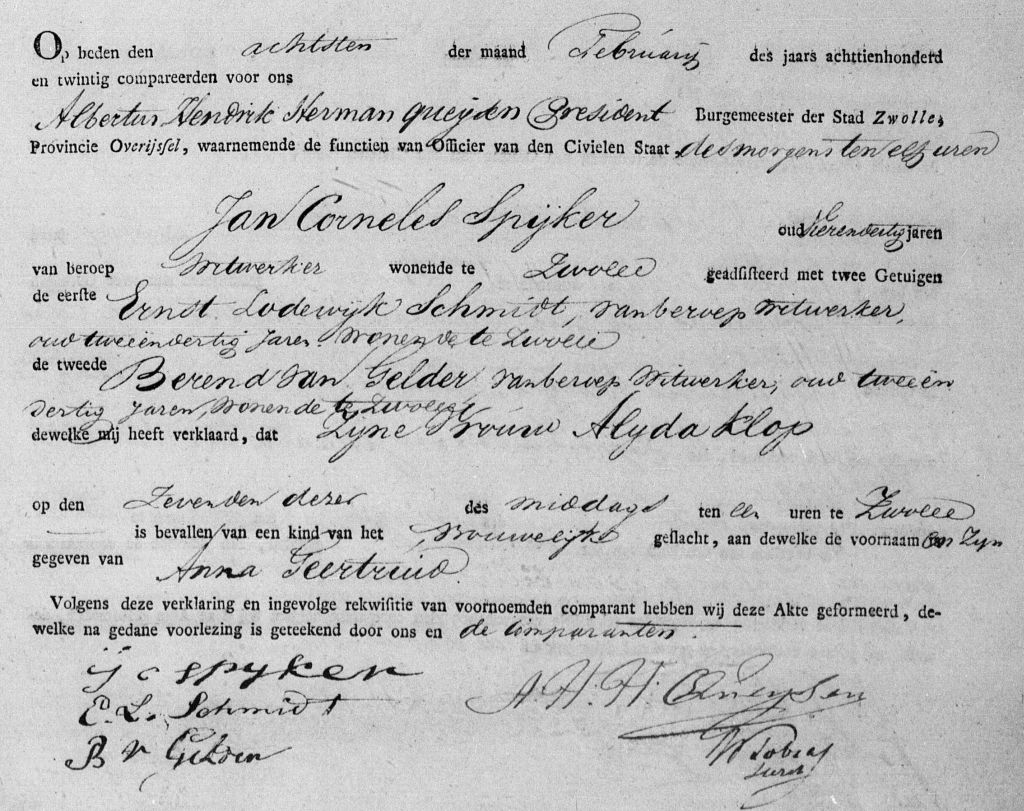 Op heden den achtsten der maand Februarij des jaars achttienhonderd
en twintig compareerden voor ons
Albertus Hendrik Herman Queijsen President Burgemeester der Stad Zwolle,
Provincie Overijssel, waarnemende de functien van Officier van den Civielen Staat, des morgens ten elf uren
Jan Corneles Spijker oud Vierendertig jaren
van beroep Witwerker wonende te Zwolle geadsisteerd met twee Getuigen
de eerste Ernst Lodewijk Schmidt, van beroep Witwerker,
oud tweeëndertig Jaren Wonende te Zwolle
de tweede Berend van Gelder van beroep Witwerker, oud tweeën
dertig Jaren, Wonende te Zwolle
dewelke mij heeft verklaard, dat Zyne Vrouw Alyda Klop
op den Zevenden dezer des middags ten een uren te Zwolle
is bevallen van een kind van het Vrouwelijke geslacht, aan dewelke de voornaamen zyn
gegeven van Anna Geertruid.
Volgens deze verklaring en ingevolge rekwisitie van voornoemden comparant hebben wij deze Akte geformeerd, de-
welke na gedane voorlezing is geteekend door ons en de Comparanten.
J C Spyker
E. L. Schmidt
B v Gelder
A. H. H. Queysen